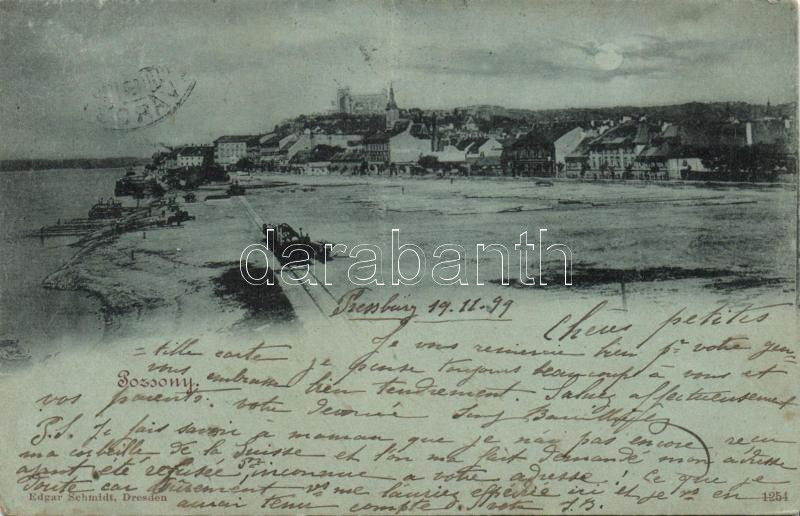 darabanth.net
Pressburg 19. 11. 99
Chères petites
Je vous remercie bien pr votre gen=
=tille carte je pense toujours beaucoup à vous et
Pozsony.
vous embrasse bien tendrement. Saluez affectueusement
vos parents. votre
P.S. Je fais savoir à maman que je n'ai pas encore reçu
ma corbeille de la Suisse et l'on me fait demandé mon adresse
ayant été refusée pr inconnue a votre adresse! Ce que je
doute car sûrement vs me l'auriez ici et je vs en
aurai tenu compte. J.B.
Edgar Schmidt, Dresden
1254